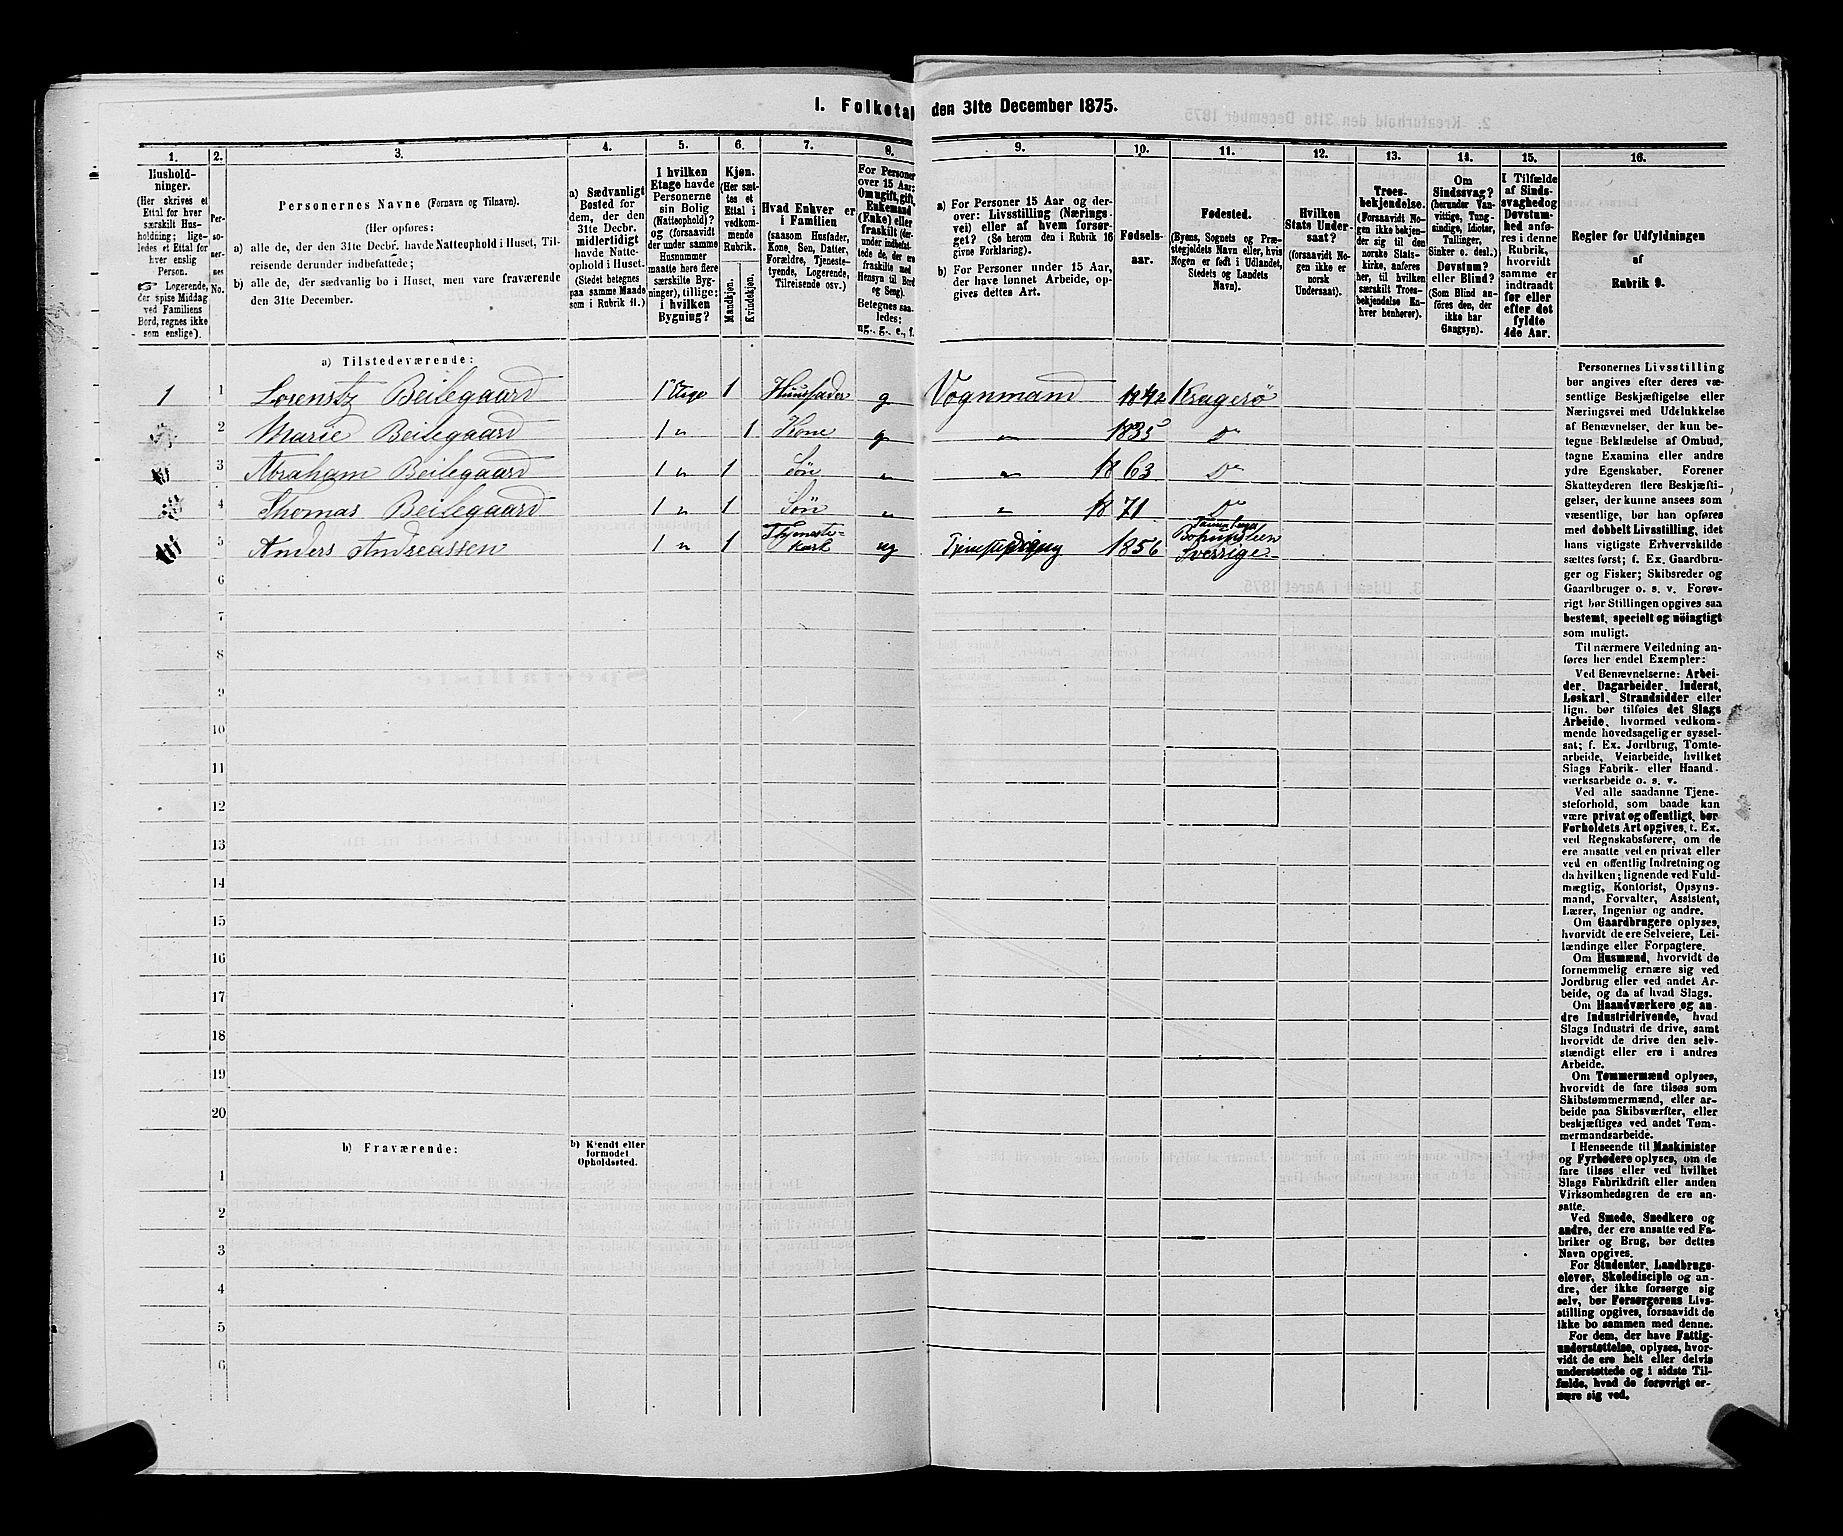 1. Folketal den 31te December 1875.
1. 2. 3. 4. 5. 6. 7. 8. 9. 10. 11. 12. 13. 14. 15. 16.
Hushold-
ninger.
(Her skrives et
Ettal for hver
særskilt Hus-
holdning; lige-
ledes et Ettal for
hver enslig
Person.
☞ Logerende,
der spise Middag
ved Familiens
Bord, regnes ikke
som enslige).
Per-
so-
ner-
nes
No.
Personernes Navne (Fornavn og Tilnavn).
(Her opføres:
a) alle de, der den 31te Decbr. havde Natteophold i Huset, Til-
reisende derunder indbefattede;
b) alle de, der sædvanlig bo i Huset, men vare fraværende
den 31te December.
a) Sædvanligt
Bosted for
dem, der den
31te Decbr.
midlertidigt
havde Natte-
ophold i Huset.
(Stedet betegnes
paa samme Maade
som i Rubrik 11.)
I hvilken
Etage havde
Personerne
sin Bolig
(Natteophold)?
og (forsaavidt
der under samme
Husnummer
maatte høre flere
særskilte Byg-
ninger), tillige: i
i hvilken
Bygning?
Kjøn.
(Her sæt-
tes et
Ettal i
vedkom-
mende
Rubrik.
Mandkjøn.
Kvindekjøn.
Hvad Enhver er
i Familien
(saasom Husfader,
Kone, Søn, Datter,
Forældre, Tjeneste-
tyende, Logerende,
Tilreisende osv.)
For Personer
over 15 Aar:
Om ugift, gift,
Enkemand
(Enke) eller
fraskilt (der-
under indbefat-
tede de, der ere
fraskilte med
Hensyn til Bord
og Seng).
Betegnes saa-
ledes:
ug., g., e., f.
a) For Personer 15 Aar og der-
over: Livsstilling (Nærings-
vei) eller af hvem forsør-
get? (Se herom den i Rubrik 16
givne Forklaring).
b) For Personer under 15 Aar,
der have lønnet Arbeide, op-
gives dettes Art.
Fødsels-
aar.
Fødested.
(Byens, Sognets og Præ-
stegjeldets Navn eller, hvis
Nogen er født i Udlandet,
Stedets og Landets
Navn).
Hvilken
Stats Under-
saat?
(forsaavidt No-
gen ikke er
norsk
Undersaat).
Troes-
bekjendelse.
(Forsaavidt No-
gen ikke bekjen-
der sig til den
norske Stats-
kirke, anføres
her, til hvilken
særskilt Troes-
bekjendelse En-
hver henhører).
Om
Sindssvag?
(herunder Van-
vittige, Tung-
sindige, Idioter,
Tullinger,
Sinker o. desl.)
Døvstum?
eller Blind?
(Som Blind an-
føres den, der
ikke har
Gangsyn).
I Tilfælde
af Sinds-
svaghed og
Døvstum-
hed anfø-
res i denne
Rubrik,
hvorvidt
samme er
indtraadt
før eller
efter det
fyldte
4de Aar.
Regler for Udfyldningen
af
Rubrik 9.
a) Tilstedeværende:
1 1 Lorenstz Beilegaard 1ste Etage 1 Huusfader g Vognmand 1842 Kragerø
2 Marie Beilegaard 1 " 1 Kone g " 1835 Do
3 Abraham Beilegaard 1 " 1 Søn " " 1863 Do
4 Thomas Beilegaard 1 " 1 Søn " " 1871 Do
5 Anders Andreassen 1 " 1 Thjeneste-
karl ug 1856
Sverrige
6
7
8
9
10
11
12
13
14
15
16
17
18
19
20
b) Fraværende:
b) Kjendt eller
formodet
Opholdssted.
1
2
3
4
5
6
Personernes Livsstilling
bør angives efter deres væ-
sentlige Beskjæftigelse eller
Næringsvei med Udelukkelse
af Benævnelser, der kun be-
tegne Beklædelse af Ombud,
tagne Examina eller andre
ydre Egenskaber. Forener
Skatteyderen flere Beskjæfti-
gelser, der kunne ansees som
væsentlige, bør han opføres
med dobbelt Livsstilling, idet
hans vigtigste Erhvervskilde
sættes først; f. Ex. Gaardbru-
ger og Fisker; Skibsreder og
Gaardbruger o. s. v. Forøv-
rigt bør Stillingen opgives saa
bestemt, specielt og nöiagtigt
som muligt.
Til nærmere Veiledning an-
føres her endel Exempler:
Ved Benævnelserne: Arbei-
der, Dagarbeider, Inderst,
Løskarl, Strandsidder eller
lign. bør tilføies det Slags
Arbeide, hvormed vedkom-
mende hovedsagelig er syssel-
sat; f. Ex. Jordbrug, Tomte-
arbeide, Veiarbeide, hvilket
Slags Fabrik- eller Haand-
værksarbeide o. s. v.
Ved alle saadanne Tjene-
steforhold, som baade kan
være privat og offentligt, bør
Forholdets Art opgives, t. Ex.
ved Regnskabsførere, om de
ere ansatte ved en privat eller
ved en offentlig Indretning og
da hvilken; lignende ved Fuld-
mægtig, Kontorist, Opsyns-
mand, Forvalter, Assistent,
Lærer, Ingeniør og andre.
Om Gaardbrugere oplyses,
hvorvidt de ere Selveiere, Lei-
lændinge eller Forpagtere.
Om Husmænd, hvorvidt de
fornemmelig ernære sig ved
Jordbrug eller ved andet Ar-
beide, og da af hvad Slags.
Om Haandværkere og an-
dre Industridrivende, hvad
Slags Industri de drive, samt
hvorvidt de drive den selv-
stændigt eller ere i andres
Arbeide.
Om Tømmermænd oplyses,
hvorvidt de fare tilsøs som
Skibstømmermænd, eller ar-
beide paa Skibsværfter, eller
beskjæftiges ved andet Tøm-
mermandsarbeide.
I Henseende til Maskinister
og Fyrbødere oplyses, om de
fare tilsøs eller ved hvilket
Slags Fabrikdrift eller anden
Virksomhedsgren de ere an-
satte.
Ved Smede, Snedkere og
andre, der ere ansatte ved Fa-
briker og Brug, bør dettes
Navn opgives.
For Studenter, Landbrugs-
elever, Skoledisciple og an-
dre, der ikke forsørge sig
selv, bør Forsørgerens Livs-
stilling opgives, forsaavidt de
ikke bo sammen med denne.
For dem, der have Fattig-
understøttelse, oplyses, hvor-
vidt de ere helt eller delvis
understøttede og i sidste Til-
fælde, hvad de forøvrigt er-
nære sig ved.